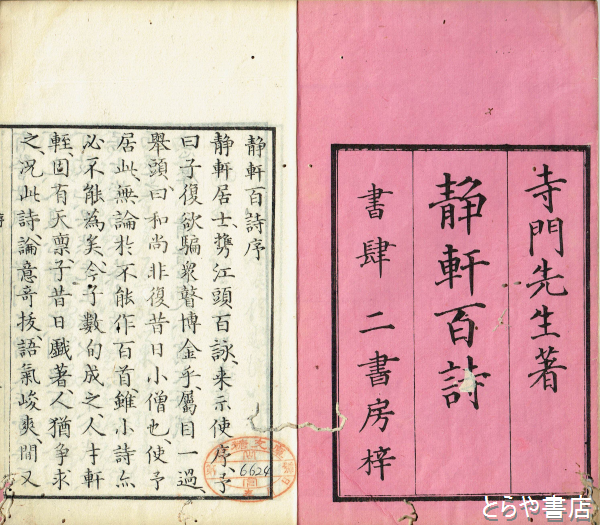 寺門先生著
静軒百詩
書肆 二書房梓
静軒百詩序
静軒居士携江頭百詠、来示使序予
曰子復欲騙衆瞽博金乎、属目一過、
挙頭、曰和尚非復昔日小僧也、使予
居此、無論於不能作百首雖小詩亦
必不能為矣、今子数旬成之、人才軒
輊、固有天禀、子昔日戯著、人猶争求
之、况此詩、論意奇抜、語気峻爽、間又
6624
とらや書店